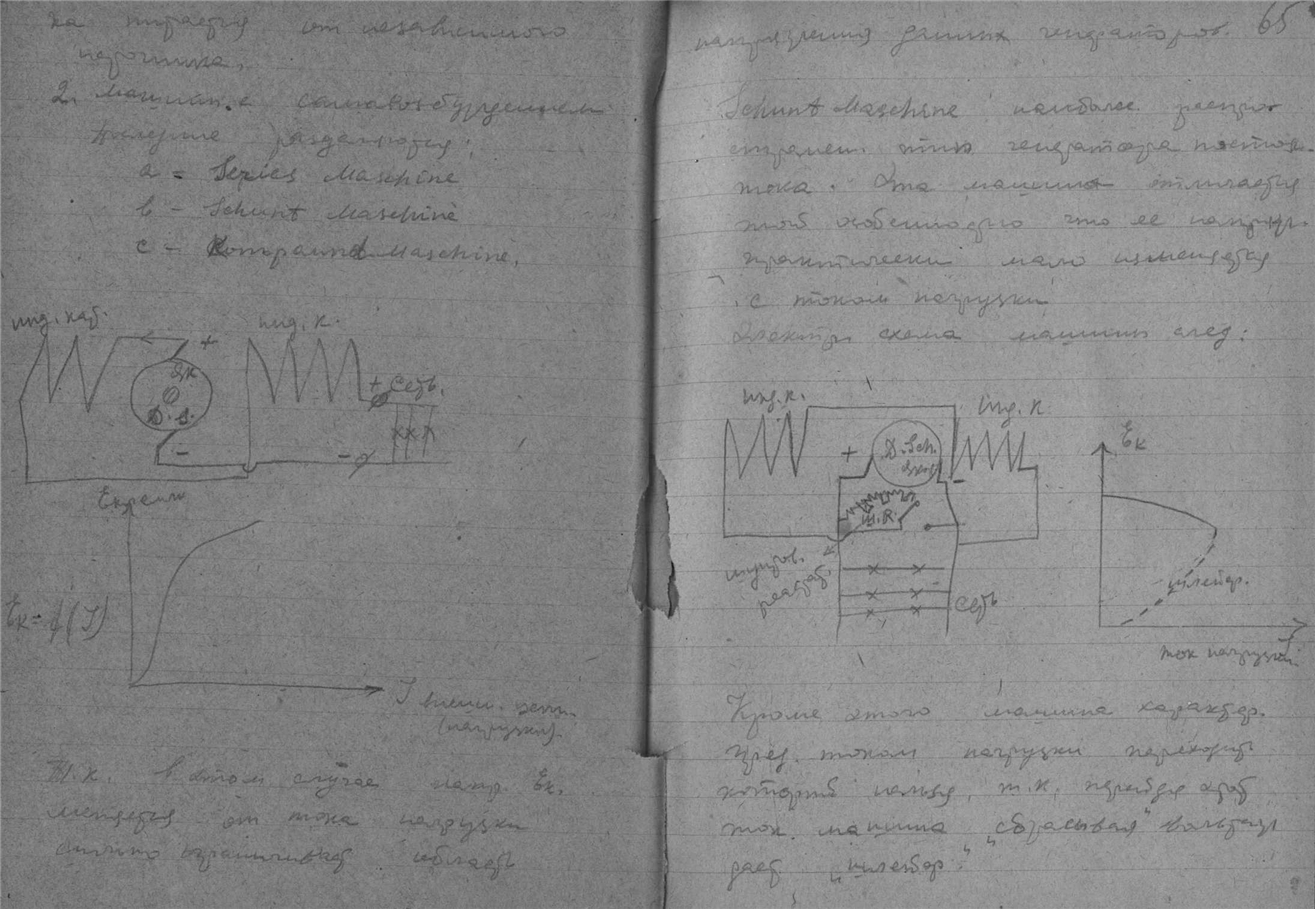 ка питается от независимого
источника.
2. Машина с самовозбуждением
Последние разделяются:
a - Series Maschine
b - Schunt Maschine
c - Kompaund Maschine.
инд. каб.
инд. к.
+
Як
D.S.
-
+ Сеть.
-
Eк = f(J)
J внеш. цепи
(нагрузки).
Т.к. в этом случае напр. Eк.
меняется от тока нагрузки
область
65
напряжения данных генераторов.
Schunt Maschine наиболее распро-
странен. тип генератора постоя.
тока. Эта машина отличается
той особенностью что ее напряж.
практически мало изменяется
с током нагрузки
Электри схема машины след:
инд. к.
инд. к
+
D. Sch.
Якорь
-
Ш.R.
шунтов.
реостат.
Сеть
Eк
шлейф.
J
ток нагрузки.
Кроме этого машина характер.
пред. током нагрузки переходить
который нельзя, т.к. перейдя этот
ток машина „сбрасывая“ вольтаж
дает „шлейф“.